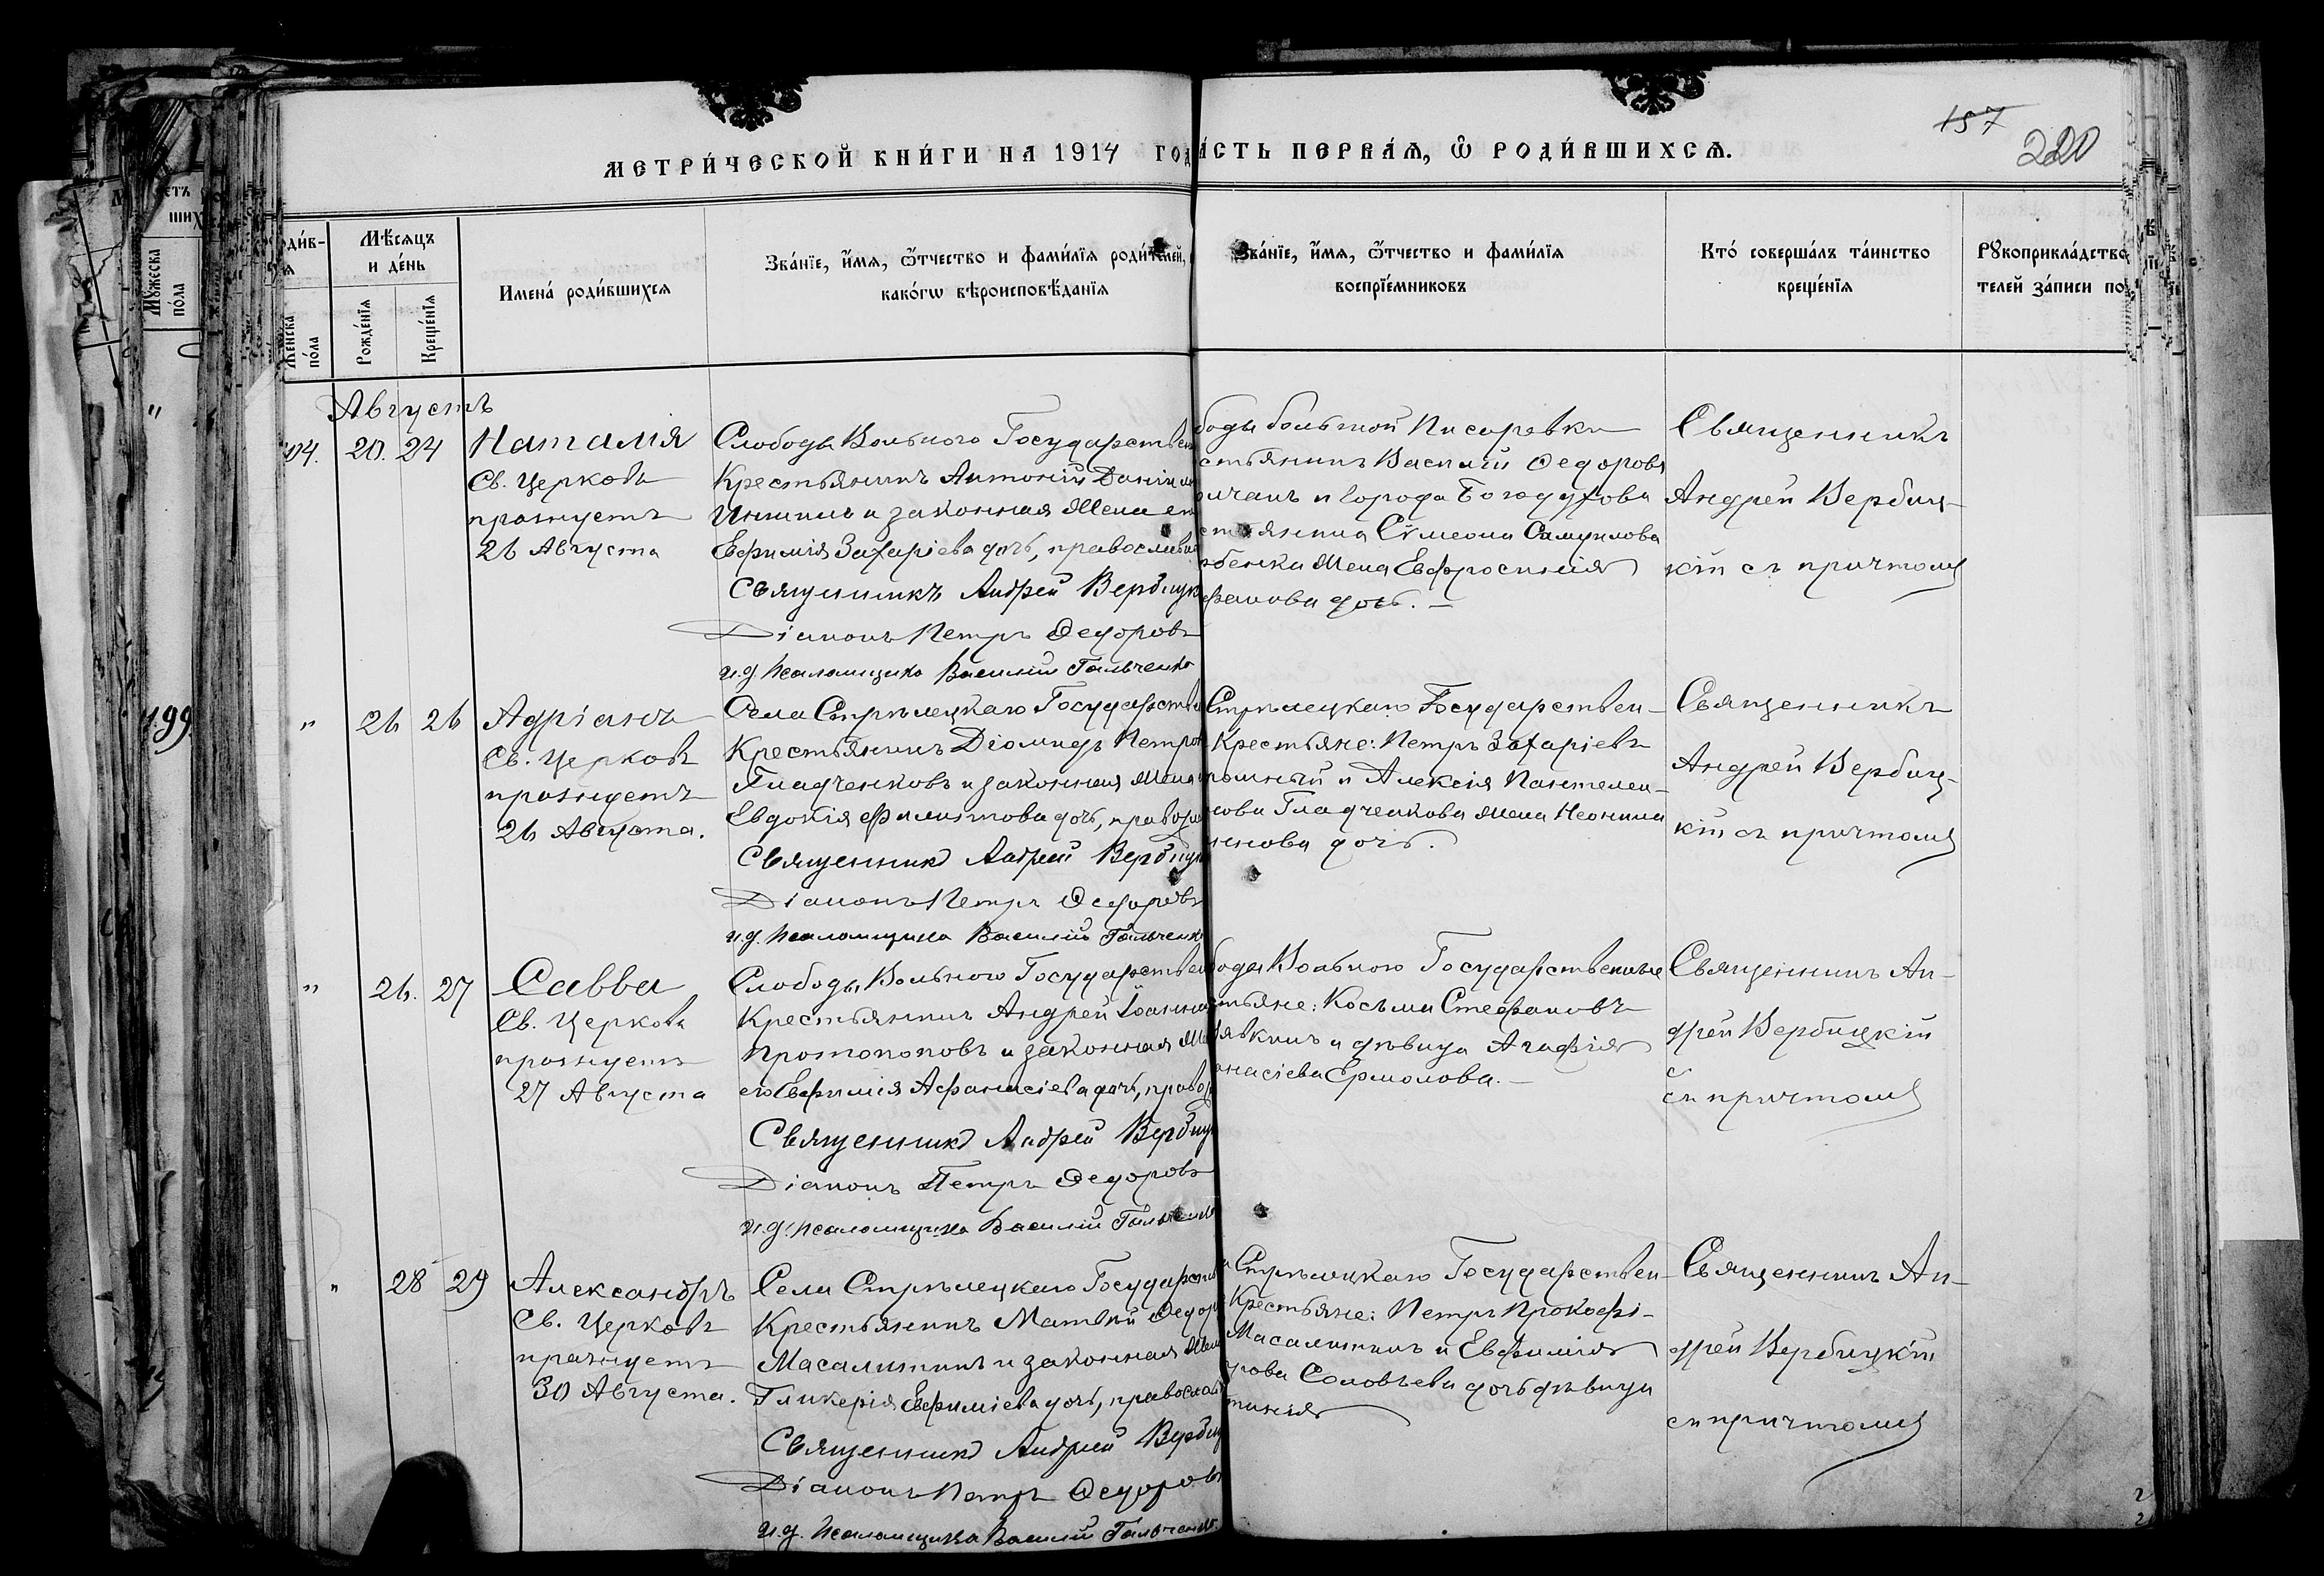 157
220
МЕТРИ́ЧЕСКОЙ КНИ́ГИ НА 1914 ГОД
А́СТЬ ПЕРВА́Я, Ѽ РОДИ́ВШИХСЯ.
Мѣ́сяцъ
и де́нь
Рожде́нїя
Креще́нїя
Же́нска
по́ла
Му́жеска
по́ла
Имена́ роди́вшихся
Зва́нїе, и҆́мя, ѻ҆́тчество и фами́лїя роди́телей,
како́гѡ вѣроисповѣ́данїя
Зва́нїе, и҆́мя, ѻ҆́тчество и фами́лїя
воспрїе́мниковъ
Кто́ соверша́лъ та́инство
креще́нїя
Рꙋкоприкла́дство
телей за́писи по
Августъ
20. 24
Наталия
Св. Церковь
празнуетъ
26 Августа
Слободы Вольного Государствен
Крестьянинъ Антоній Даніил
и законная жена ег
Евфимія Захаріева дочь, православн
Священникъ Андрей Вербицк
Діаконъ Петръ Федоровъ
и.д. псаломщика Василій Гальченко
боды большой Писаревки
стьянинъ Василій Федоровъ
и города Богодухова
стьянина Сѵмеона Самуилова
бенки жена Евфросинія
фанова дочь. —
Священникъ
Андрей Вербиц-
кій съ причтомъ
199
" 26 26
Адріанъ
Св. Церковь
празнуетъ
26 Августа.
Села Стрѣлецкаго Государств
Крестьянинъ Діомидъ Петров
Гладченковъ и законная жена
Евдокія Филиппова дочь, правосл
Священник Андрей Вербицк
Діаконъ Петръ Федоровъ
и.д. псаломщика Василій Гальченк
Стрѣлецкаго Государствен-
Крестьяне: Петръ Захаріевъ
и Алексія Пантелеи-
нова Гладченкова жена Неонила
дочь.
Священникъ
Андрей Вербиц-
кій съ причтомъ
" 26. 27
Савва
Св. Церковь
празнуетъ
27 Августа
Слободы Вольного Государствен
Крестьянинъ Андрей Іоанно
Протопоповъ и законная же
его Евфимія Афанасіева дочь, правос
Священник Андрей Вербиц
Діаконъ Петръ Федоровъ
и.д. псаломщика Василій Гальченк
боды Вольного Государственные
стьяне: Косьма Стефановъ
и дѣвица Агафія
анасіева Ермолова. —
Священникъ Ан-
дрей Вербицкій
съ причтомъ
" 28 29
Александръ
Св. Церковь
празнуетъ
30 Августа.
Села Стрѣлецкаго Государств
Крестьянинъ Матвѣй Федор
Масалитинъ и законная жен
Гликерія Евфиміева дочь, православ
Священник Андрей Вербиц
Діаконъ Петръ Федоровъ
и.д. псаломщика Василій Гальченк.
Стрѣлецкаго Государствен-
Крестьяне: Петръ Прокофі-
Масалитинъ и Евфимія
Соловьева дочь дѣвица
Священникъ Ан-
дрей Вербицкій
съ причтомъ